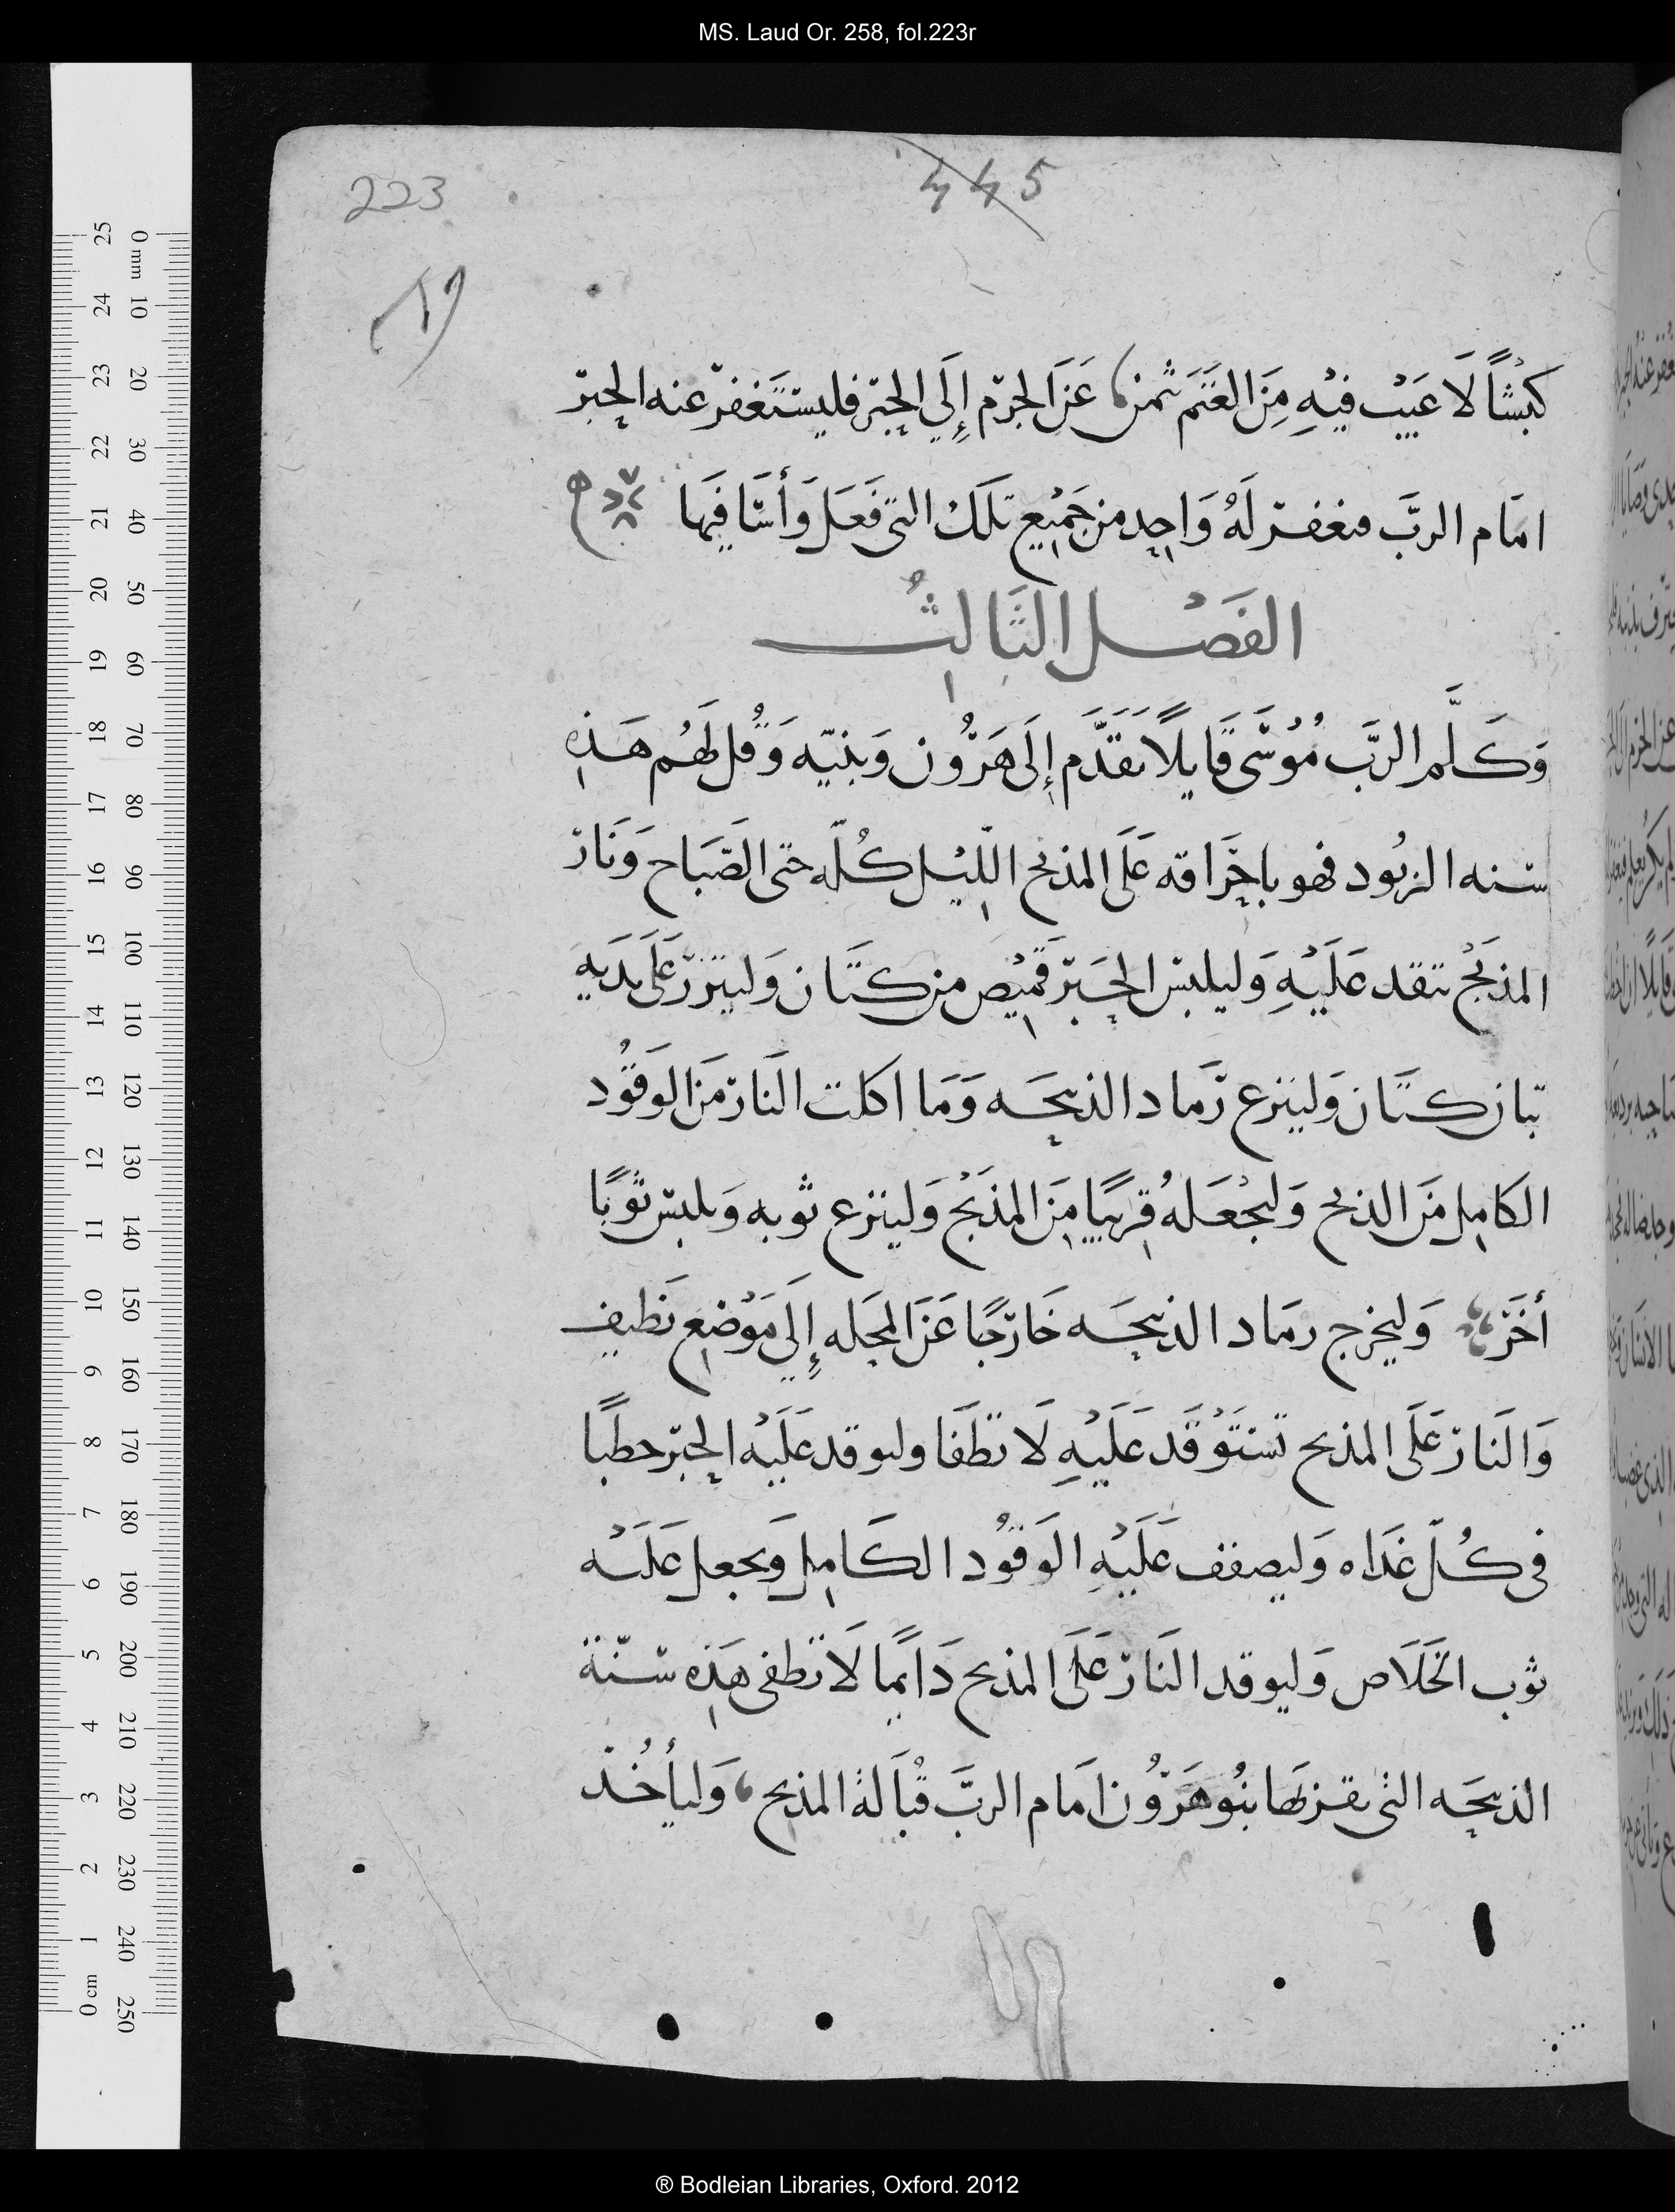 MS. Laud Or. 258, fol.223r
223
445
كَبْشًا لَا عَيْب فيْهِ مِنَ الغَنَم ثمنها عَنَ الجرْم إِلَي الحِبْر فليستَغفرْ عنه الحِبرْ
امَام الربَّ فيغفر لَهُ وَاحِد من جَمِيْعِ تلَكَ التى فَعَلَ وَأسَا فيَها
الفَصْل الثَالِثُ
وَكَلَّم الربَّ مُوُسَى قَايلًا تقَدَّم إِلَى هَرُون وَبنيْه وَقُل لهَمُ هَذِه
سنه الزبُود فهو باحِرَاقه عَلَى المذبح اللِيْل كُلّه حتى الصَبَاح وَنَارْ
المذبَحْ تتقد عَلَيْهِ وَليلبسْ الحِبَرْ قمِيْص من كتَان وَليتزرْ عَلَى بَدَنِهِ
تبان كتَان وَلينزع رَماد الذبيحَه وَمَا اكلت النَارْ مَن الوَقُوُد
الكامِل مَن الذبح وَليجْعَلهُ قِريبًا مِنَ المذبَحْ وَلينزع ثوبه وَيلبسْ ثوْبًا
أخَرْ وَليخرج رمَاد الذبيحَه خَارْجًا عَنَ المحَله إِلَي مَوْضِع نَظيف
وَالنَارْ عَلَى المذبح تستَوْقَد عَلَيْهِ لَا تطَفَا وليوقد عَلَيْه الحِبَرْ حطَبًا
فى كُلّ غَدَاه وَليصفف عَلَيْهِ الوَقُوُد الكَامِل وَيجعل عَلَيْه
ثوب الخَلَاص وَليوقد النَارْ عَلَى المذبح دَايمًا لَا تطفى هَذِه سنّة
الذبيحَه التى يقربَها بنُو هَرْوُن امَام الربَّ قُبَالة المذبح وَليأخُذْ
® Bodleian Libraries, Oxford. 2012